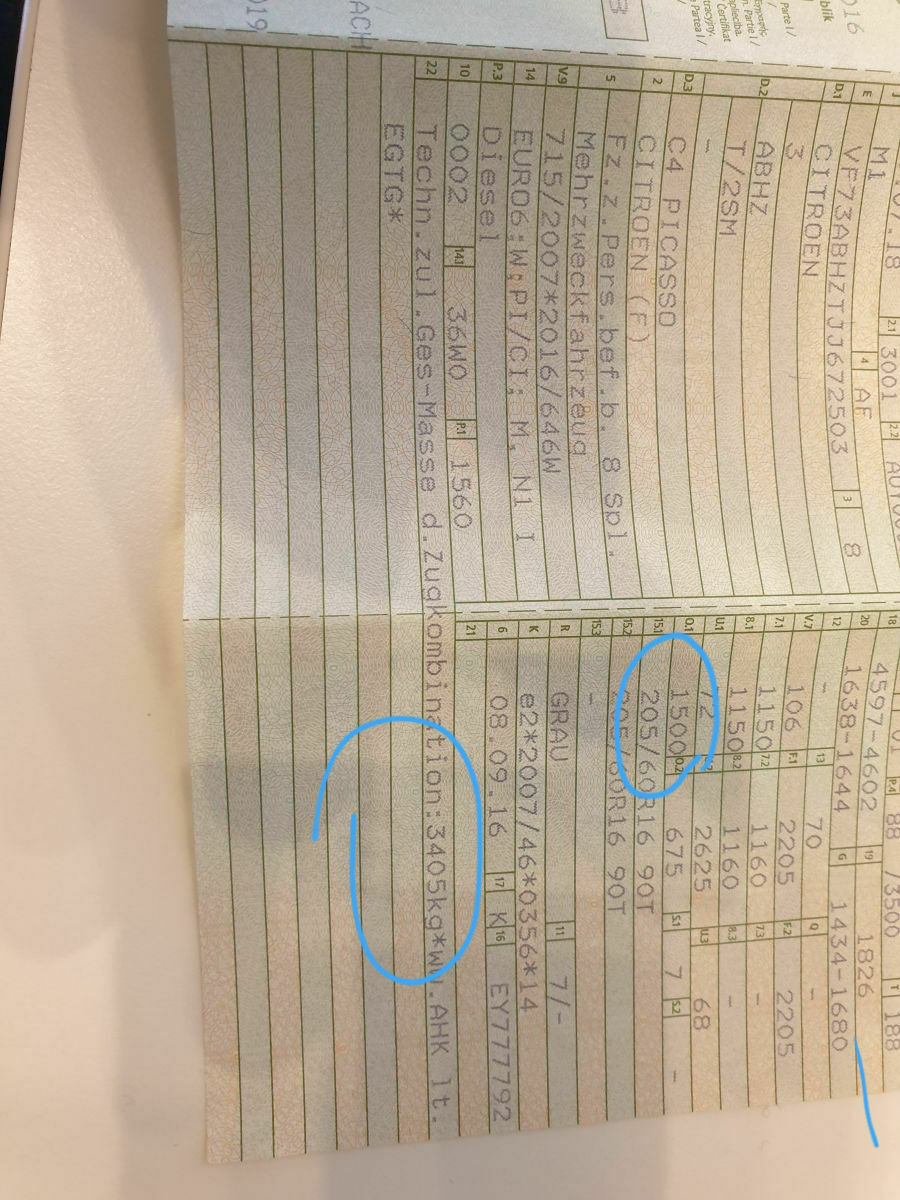 016
blik
Parte I /
Partie I /
Certifikat
Partea I /
019
ACH
J M1
.07.18 2.1 3001 2.2
E VF73ABHZTJJ672503 4 AF 3 8
D.1 CITROEN
D.2 3
ABHZ
T/2SM
D.3 -
C4 PICASSO
2 CITROEN (F)
5 Fz.z.Pers.bef.b. 8 Spl.
Mehrzweckfahrzeug
V.9 715/2007*2016/646W
14 EURO6;W;PI/CI; M, N1 I
P.3 Diesel
10 0002 14.1 36W0 P.1 1560
22 Techn.zul.Ges-Masse d.Zugkombination:3405kg*ww.AHK lt.
EGTG*
P.4 88 /3500 T 188
18 4597-4602 19 1826
20 1638-1644 G 1434-1680
12 - 13 70 Q -
V.7 106 F.1 2205 F.2 2205
7.1 1150 7.2 1160 7.3 -
8.1 1150 8.2 1160 8.3 -
U.1 72 2625 U.3 68
O.1 1500 O.2 675 S.1 7 S.2 -
15.1 205/60R16 90T
15.2 205/60R16 90T
15.3 -
R GRAU 11 7/-
K e2*2007/46*0356*14
6 08.09.16 17 K 16 EY777792
21